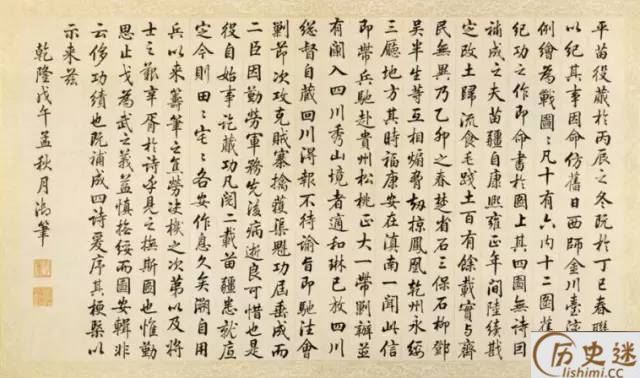 平苗役蕆於丙辰之冬既於丁巳春聯
以紀其事因命仿舊日西師金川臺灣
例繪為戰圖〻凡十有六內十二圖舊
紀功之作即命書於圖上其四圖無詩因
補成之夫苗疆自康熙雍正年間陸續戡
定改土歸流食毛踐土百有餘載實與齊
民無異乃乙卯之春楚省石三保石柳鄧
吳半生等互相煽脅劫掠鳳凰乾州永綏
三廳地方其時福康安在滇南一聞此信
即帶兵馳赴貴州松桃正大一帶剿辦並
有闌入四川秀山境者適和琳已放四川
總督自藏回川得報不待諭旨即馳往會
剿節次攻克賊寨擒獲渠魁功屆垂成而
二臣因勤勞軍務先後病逝良可惜也是
役自始事訖蕆功凡閱二載苗疆悉就底
定今則田〻宅〻各安作息久矣溯自用
兵以來籌筆之焦勞決機之次第以及將
士之艱辛胥於詩乎見之撫斯圖也惟勤
思止戈為武之義益慎撫綏而圖安輯非
云侈功績也既補成四詩爰序其梗槩以
示來茲
乾隆戊午孟秋月御筆
历史迷
lishimi.cc